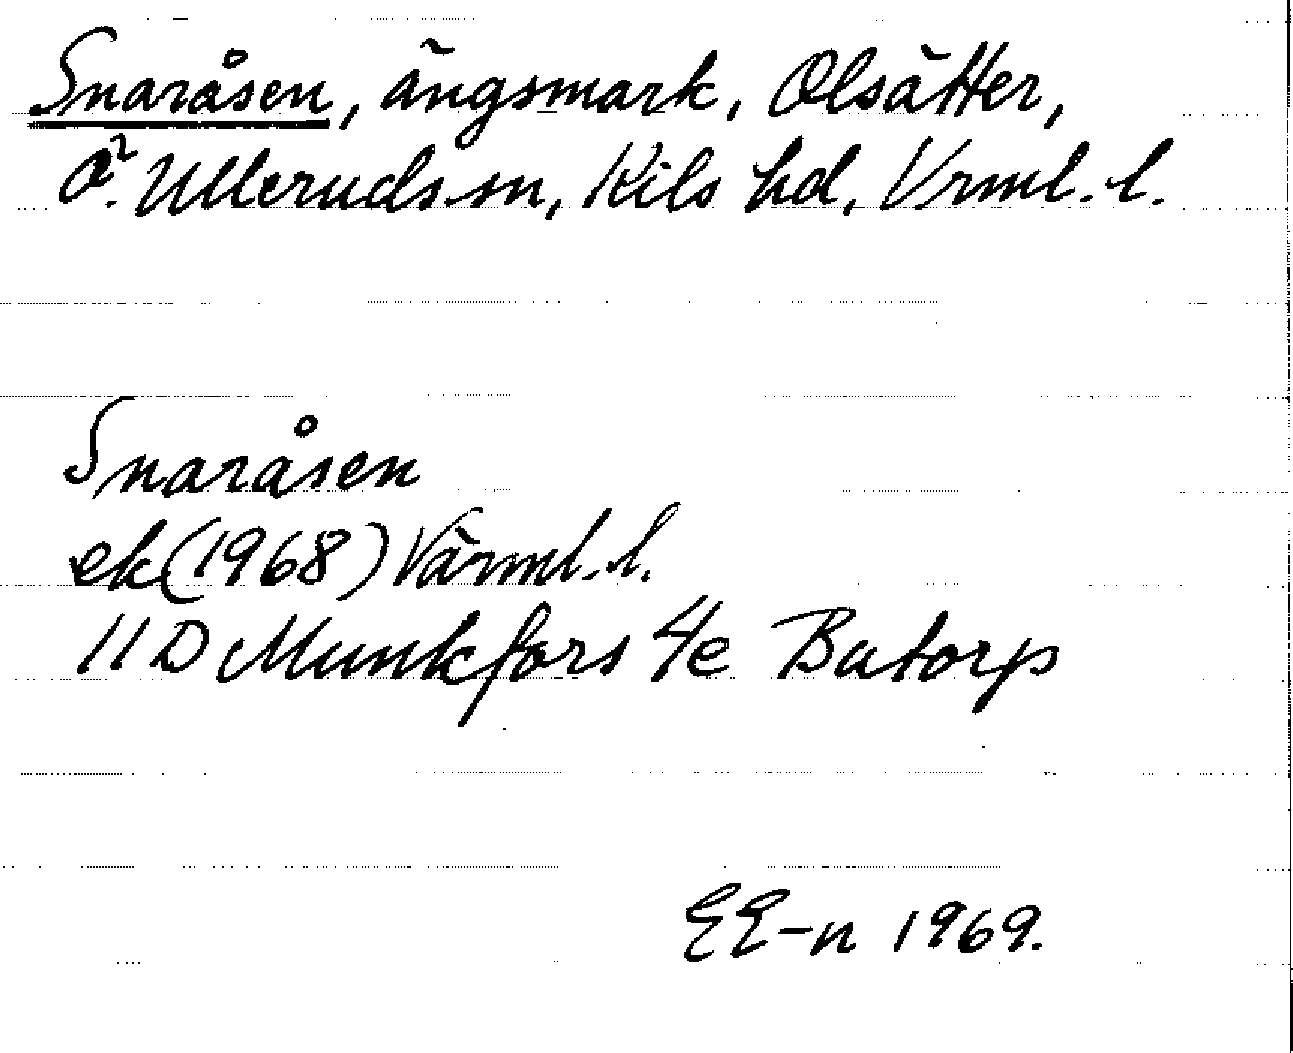 Snaråsen, ängsmark, Olsätter,
Ö. Ulleruds sn, Kils hd, Vrml. l.
Snaråsen
ek (1968) Värml. l.
11 D Munkfors 4e Butorp
EE-n 1969.